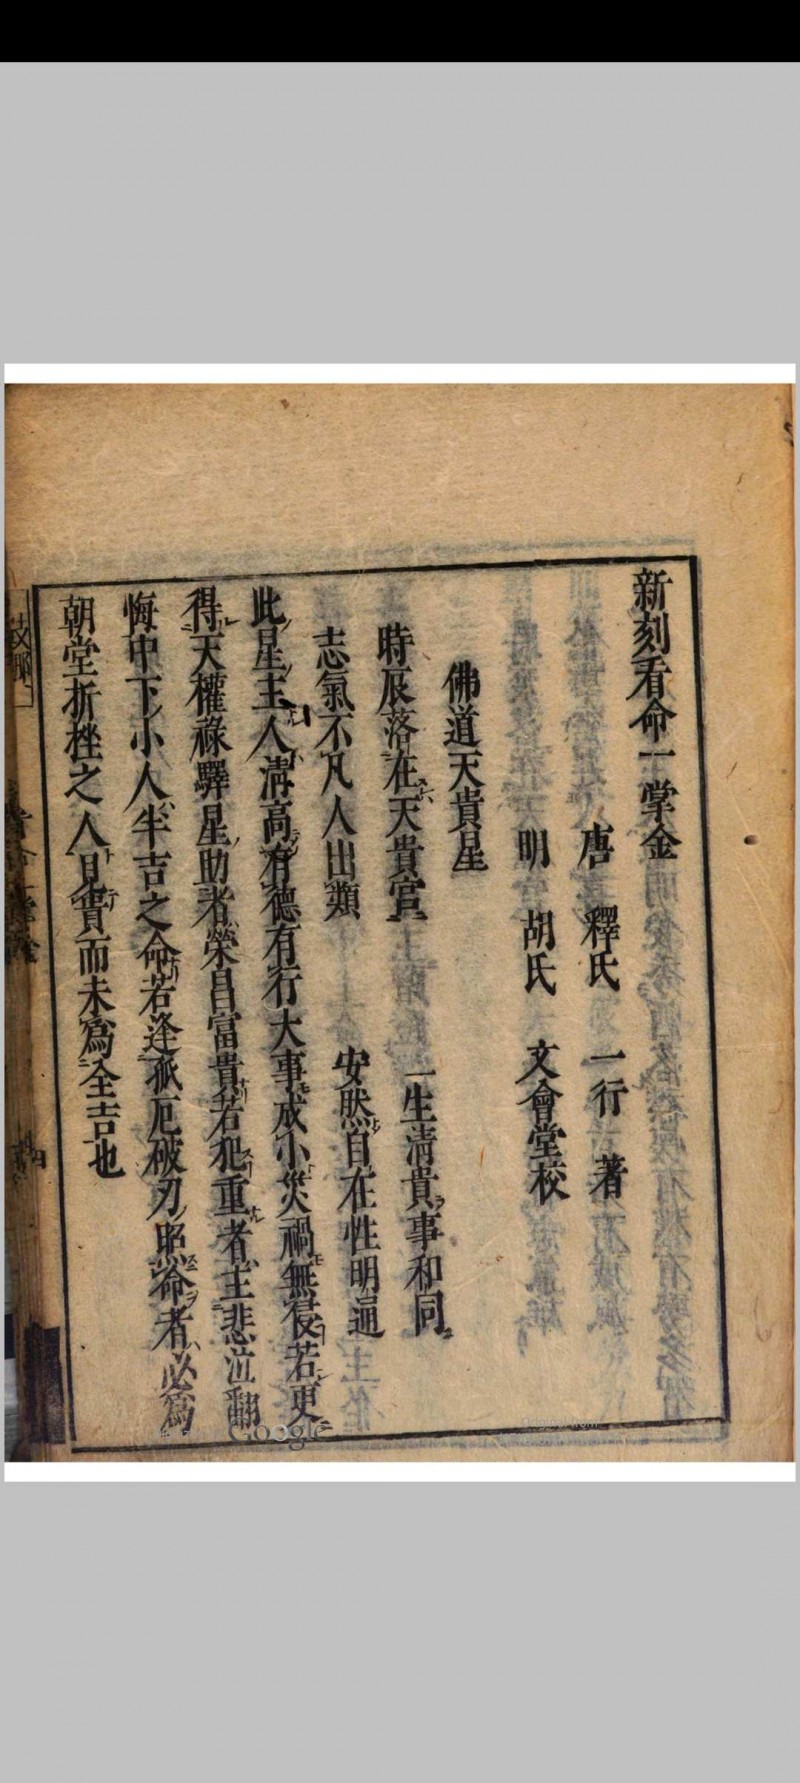 新刻看命一掌金
唐 釋氏 一行 著
明 胡氏 文會堂校
佛道天貴星
時辰落在天貴宮 一生清貴事和同
志氣不凡人出類 安然自在性明通
此星主人清高有德有行大事成小災禍無侵若更
得天權祿驛星助者榮昌富貴若犯重者主悲泣翻
悔中下小人半吉之命若逢孤厄破刃照命者必為
朝堂折挫之人見貴而未為全吉也
Google